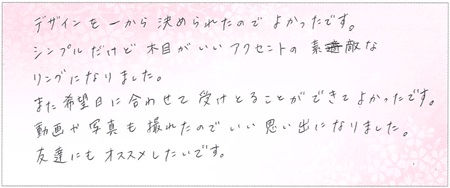 デザインを一から決められたのでよかったです。
シンプルだけど木目がいいアクセントの素敵な
リングになりました。
また希望日に合わせて受けとることができてよかったです。
動画や写真も撮れたのでいい思い出になりました。
友達にもオススメしたいです。